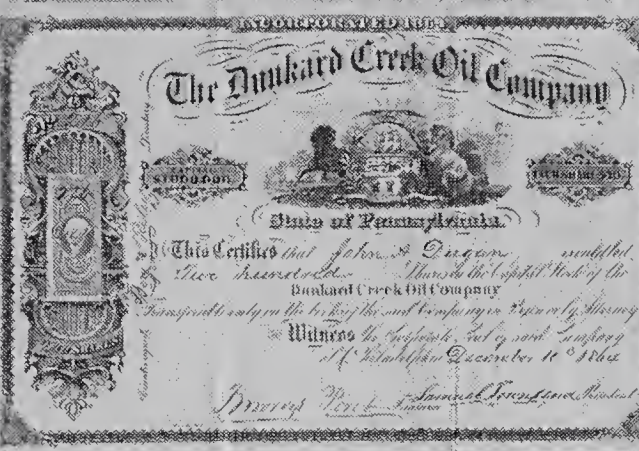 INCORPORATED 1864
The Dunkard Creek Oil Company
CAPITAL
$1000.000
State of Pennsylvania.
This Certifies that John A Dugan entitled
Five hundred Shares in the Capital Stock of the
Dunkard Creek Oil Company
Transferable only on the books of the said Company in Person or by Attorney
Witness the Corporate Seal of said Company
at Philadelphia December 10th 1864
Treasurer Samuel Townsend President